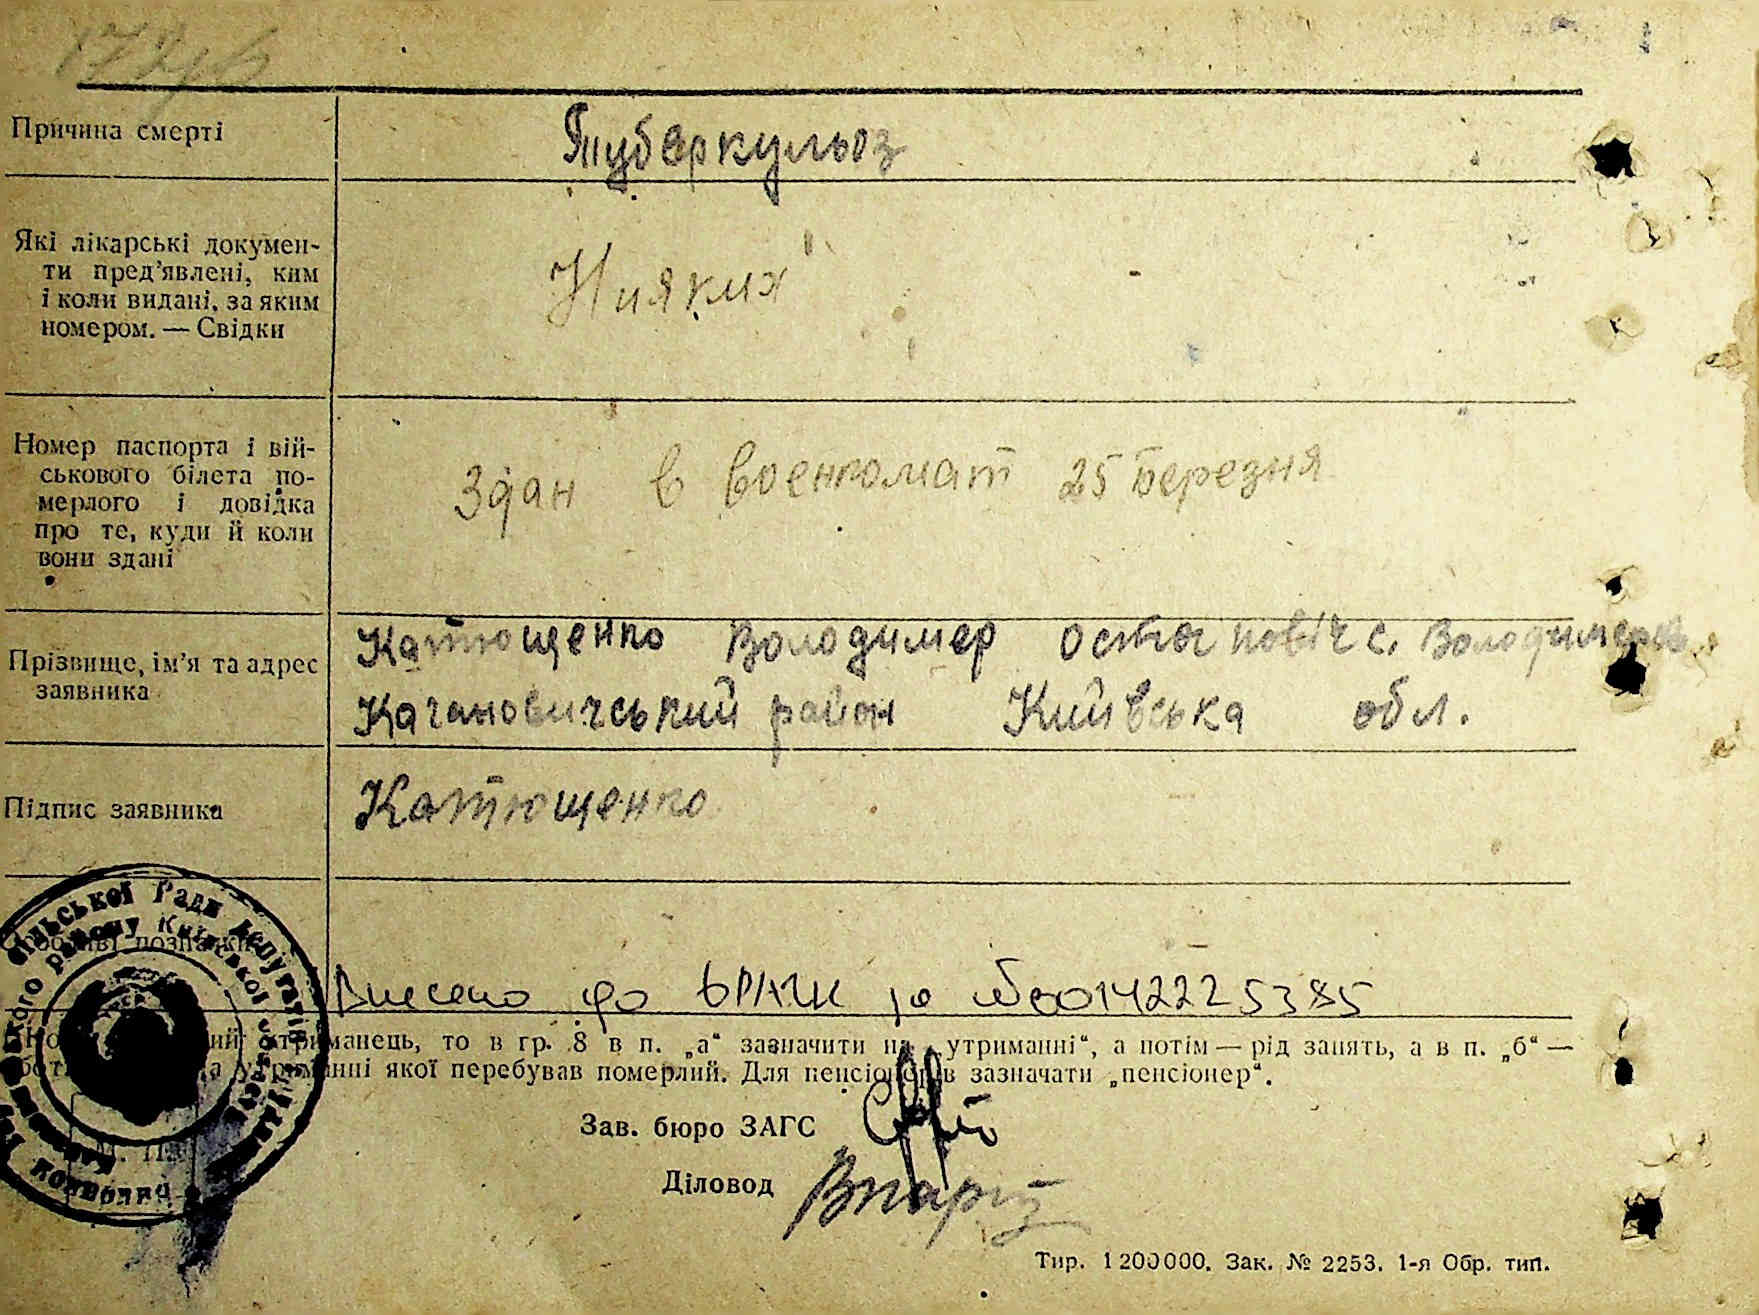 Причина смерті
Туберкульоз
Які лікарські докумен-
ти пред'явлені, ким
і коли видані, за яким
номером. — Свідки
Ніяких
Номер паспорта і вій-
ськового білета по-
мерлого і довідка
про те, куди й коли
вони здані
Здан в военкомат 25 березня
Прізвище, ім'я та адрес
заявника
Катющенко Володимер Остапович с. Володимерка
Кагановичський район Київська обл.
Підпис заявника
Катющенко
Внесено до ДРАЦС за №00142225385
манець, то в гр. 8 в п. „а" зазначити на „утриманні", а потім — рід занять, а в п. „б" —
утриманні якої перебував померлий. Для пенсіонерів зазначати „пенсіонер".
Зав. бюро ЗАГС
Діловод
Тир. 1200000. Зак. № 2253. 1-я Обр. тип.